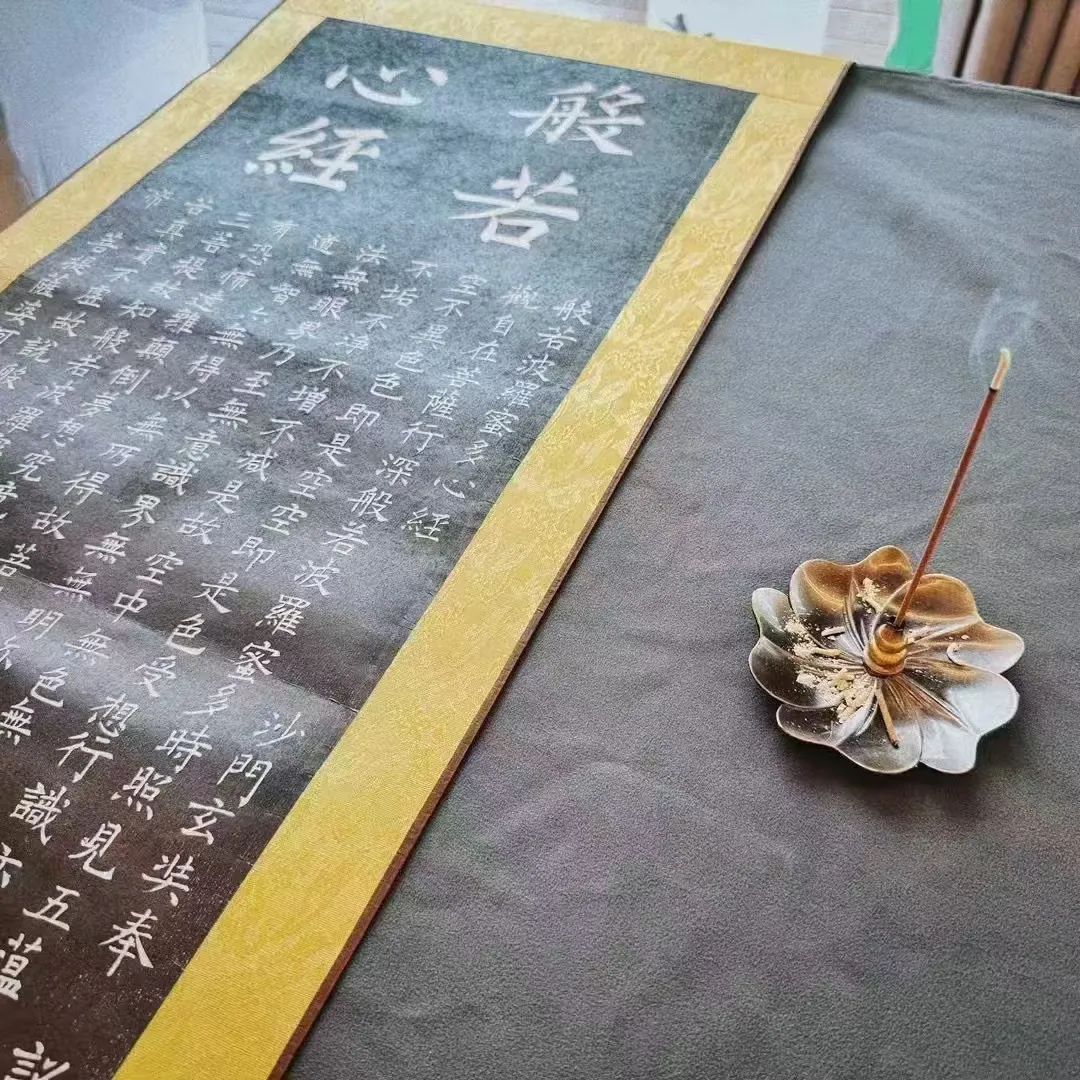 般若
心経
般若波羅蜜多心経 沙門玄奘奉
觀自在菩薩行深般若波羅蜜多時照見五蘊
空不異色色即是空空即是色受想行識
不垢不淨不增不減是故空中無色
法無眼界乃至無意識界無無明亦無
道無智亦無得以無所得故菩
有恐怖遠離顛倒夢想究竟
三菩提故知般若波羅
若真實不虛故說般
帝
菩提薩婆訶